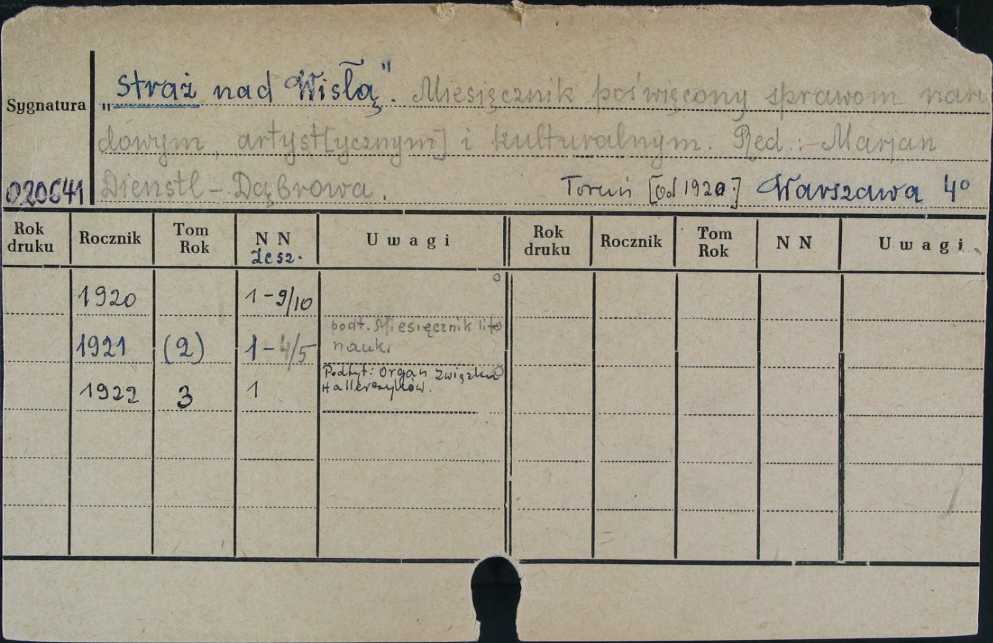 Sygnatura
„Straż nad Wisłą". Miesięcznik poświęcony sprawom naro
dowym, artyst[ycznym] i kulturalnym. Red.: Marjan
020641 Dienstl-Dąbrowa. Toruń [od 1920:] Warszawa 4°
Rok druku Rocznik Tom Rok N N Zesz. Uwagi Rok druku Rocznik Tom Rok N N Uwagi
1920 1-9/10
1921 (2) 1-4/5 podt. Miesięcznik lit.
nauk.
1922 3 1 Podtyt: Organ Związku
Hallerczyków.